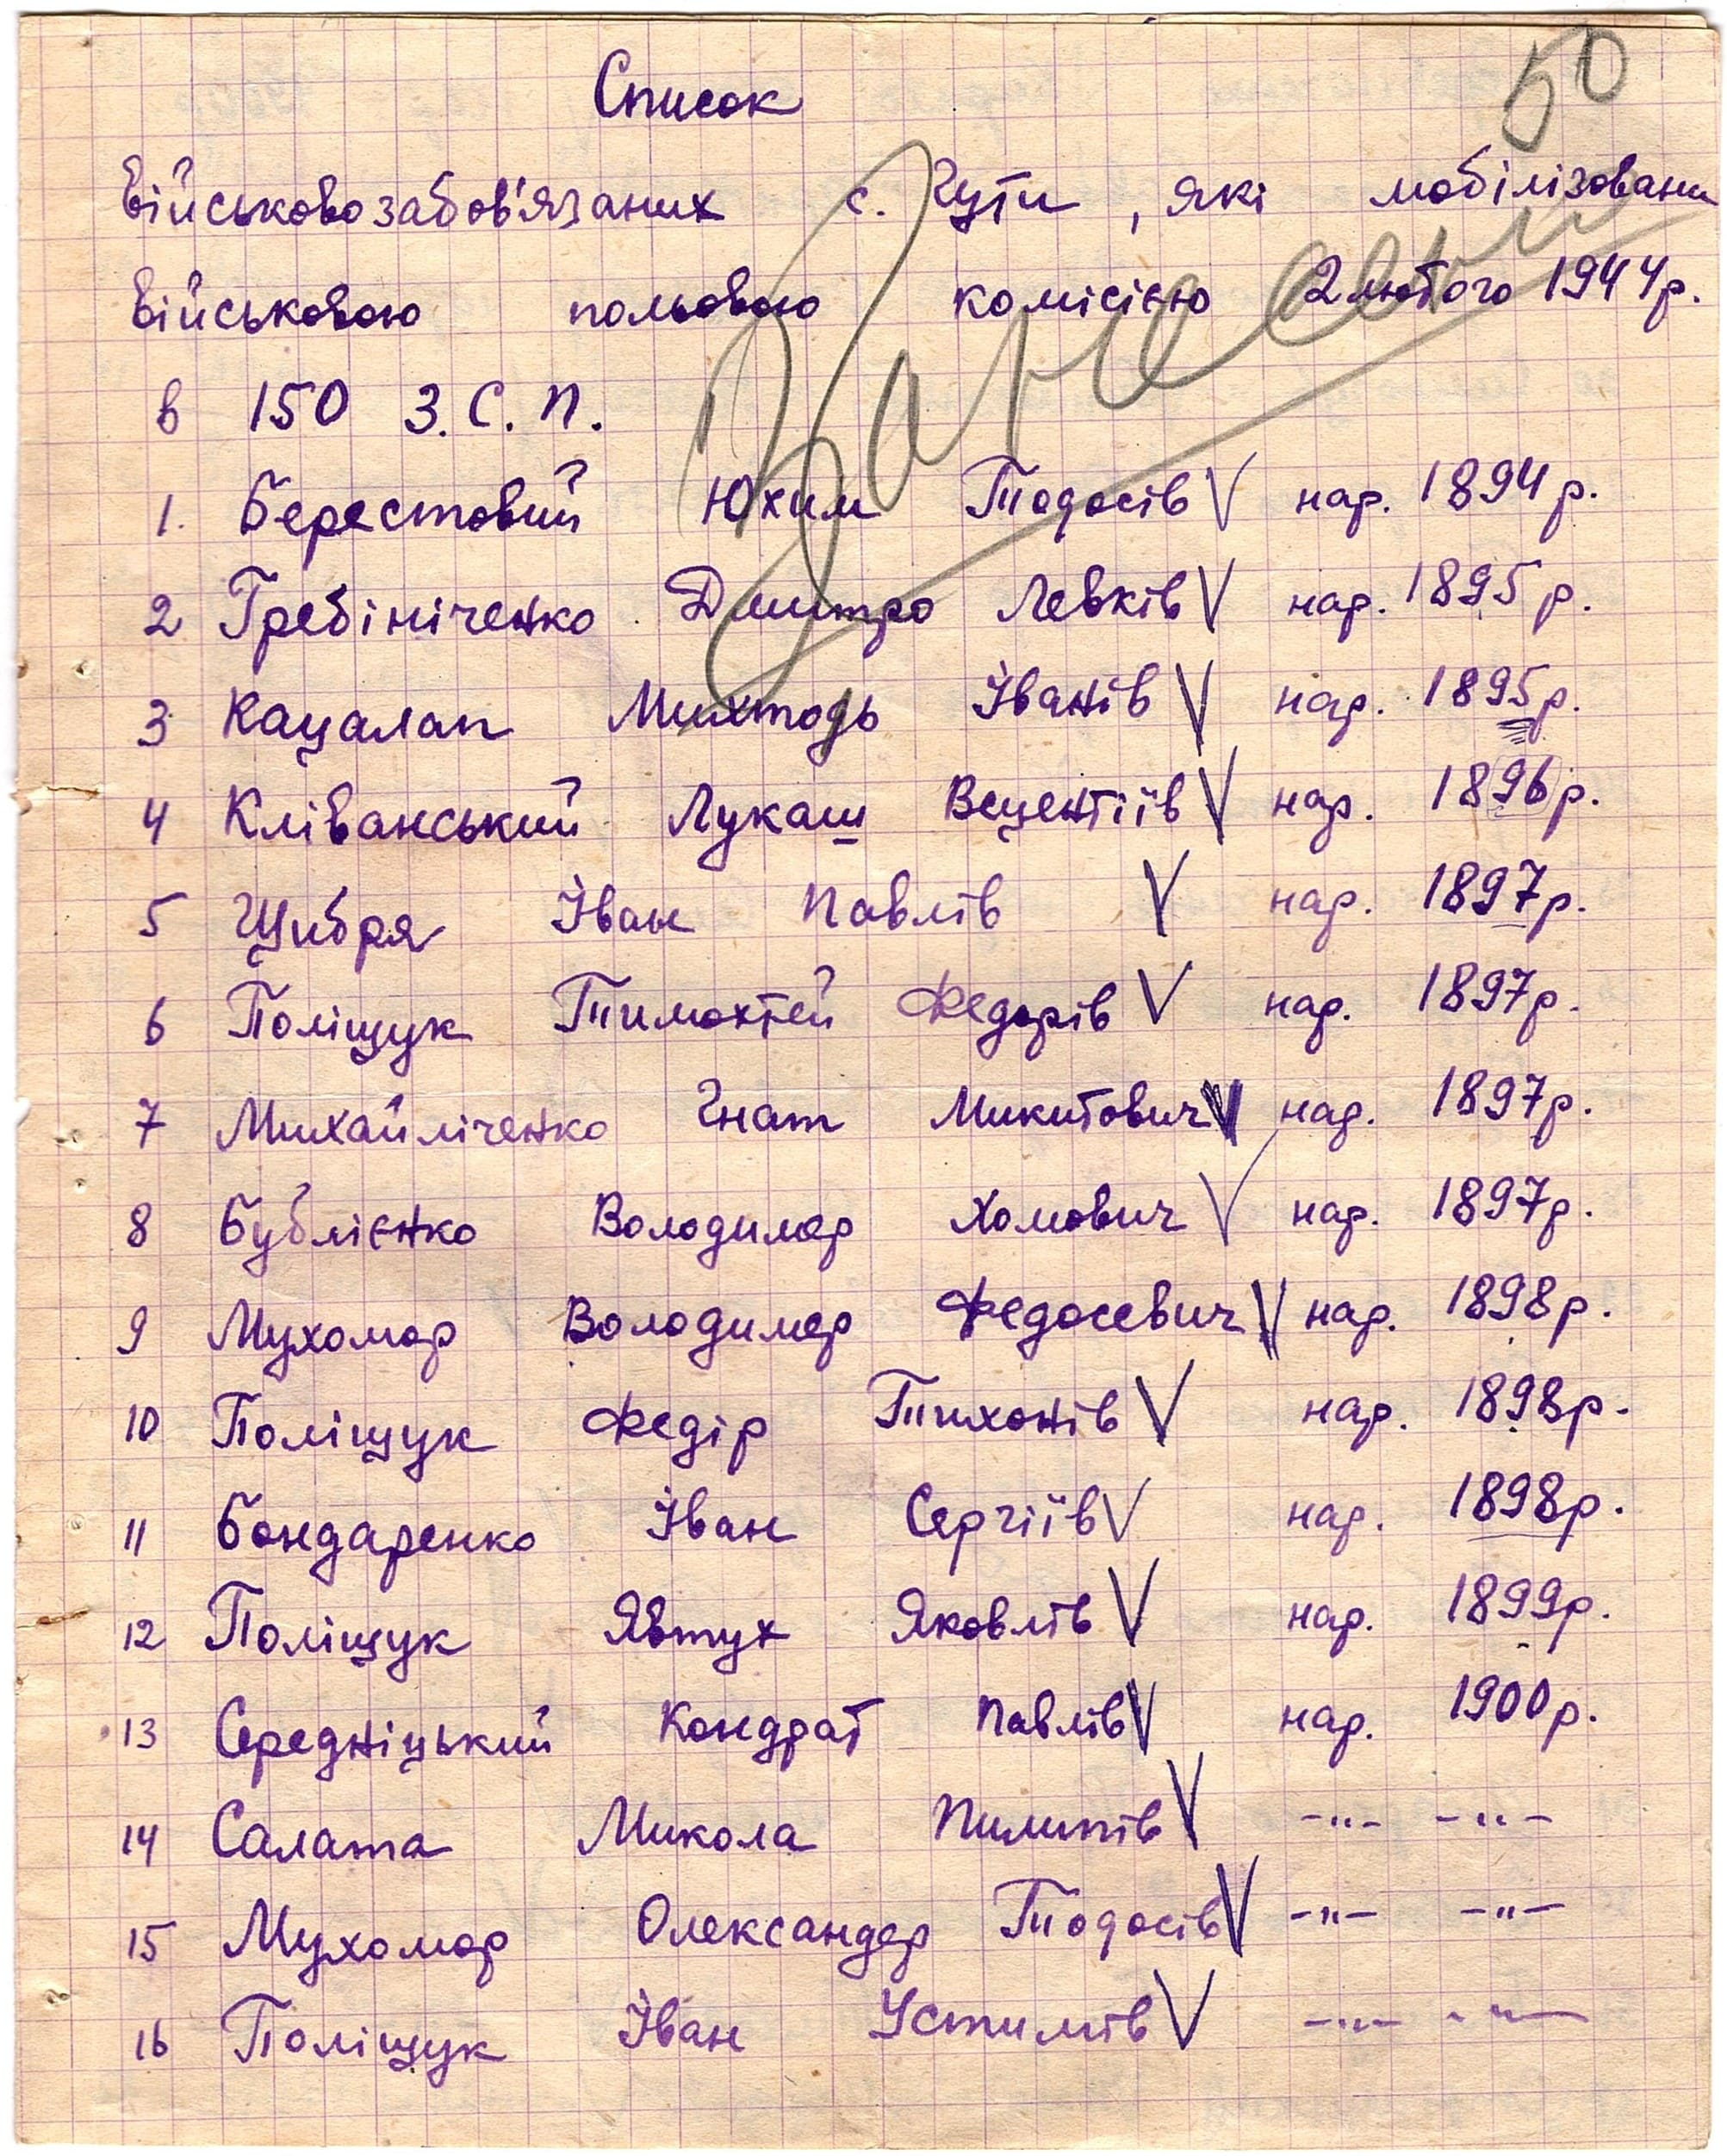 50
Список
Військовозабов'язаних с. Чути, які мобілізовани
Військовою польовою комісією 2 лютого 1944р.
в 150 З.С.П.
1. Берестовий Юхим Тодосів V нар. 1894р.
2 Гребініченко Дмитро Левків V нар. 1895р.
3 Кацалап Михтодь Іванів V нар. 1895р.
4 Кліванський Лукаш Вецентіїв V нар. 1896р.
5 Щибря Іван Павлів V нар. 1897р.
6 Поліщук Тимохтей Федорів V нар. 1897р.
7 Михайліченко Гнат Микитович V нар. 1897р.
8 Бублієнко Володимер Хомович V нар. 1897р.
9 Мухомор Володимер Федосевич V нар. 1898р.
10 Поліщук Федір Тихонів V нар. 1898р.
11 Бондаренко Іван Сергіїв V нар. 1898р.
12 Поліщук Явтух Яковлів V нар. 1899р.
13 Середніцький Кондрат Павлів V нар. 1900р.
14 Салата Микола Пилипів V -"- -"-
15 Мухомор Олександер Тодосів V -"- -"-
16 Поліщук Іван Устимів V -"- -"-